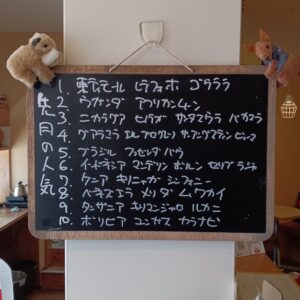 先月の人気
1. 東ティモール レテフォホ ゴウララ
2. ウガンダ アフリカンムーン
3. ニカラグア ヒバゲ サンタマウラ パカマラ
4. グアテマラ エル サンタマテン
5. ブラジル ファゼンダ バウ
6. インドネシア マンデリン ポルン セリブ ラジャ
7. ケニア キリニャガ シンフォニー
8. ベネズエラ メリダ ムクハイ
9. タンザニア キリマンジャロ ルカニ
10. ボリビア ユンガス カラナビ